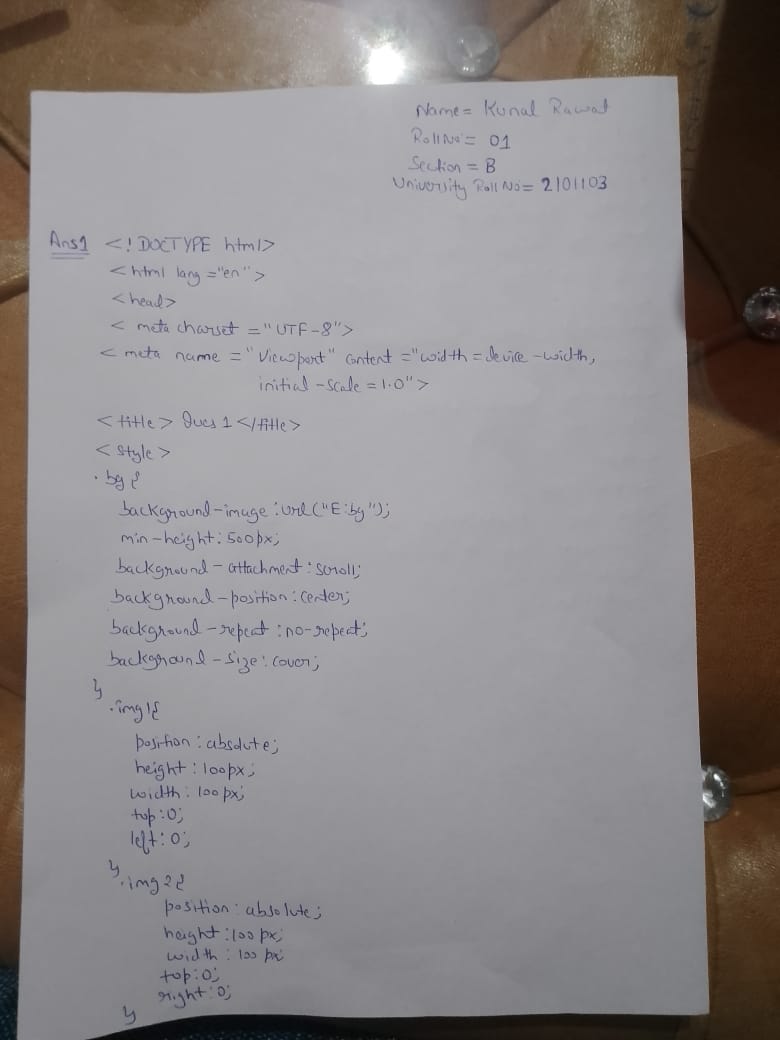 Name = Kunal Rawat
Roll No = 01
Section = B
University Roll No = 2101103
Ans1 <! DOCTYPE html>
<html lang ="en">
<head>
< meta charset = "UTF-8">
< meta name = "Viewport" content ="width = device -width,
initial -scale = 1.0">
< title > Ques 1 </title>
< style >
. bg {
background-image : url("E:bg");
min-height: 500px;
background - attachment : scroll;
background - position : center;
background - repeat : no-repeat;
background - size : cover;
}
.img1{
position : absolute;
height : 100px;
width : 100px;
top : 0;
left : 0;
}
.img2{
position : absolute;
height : 100 px;
width : 100 px;
top : 0;
right : 0;
}